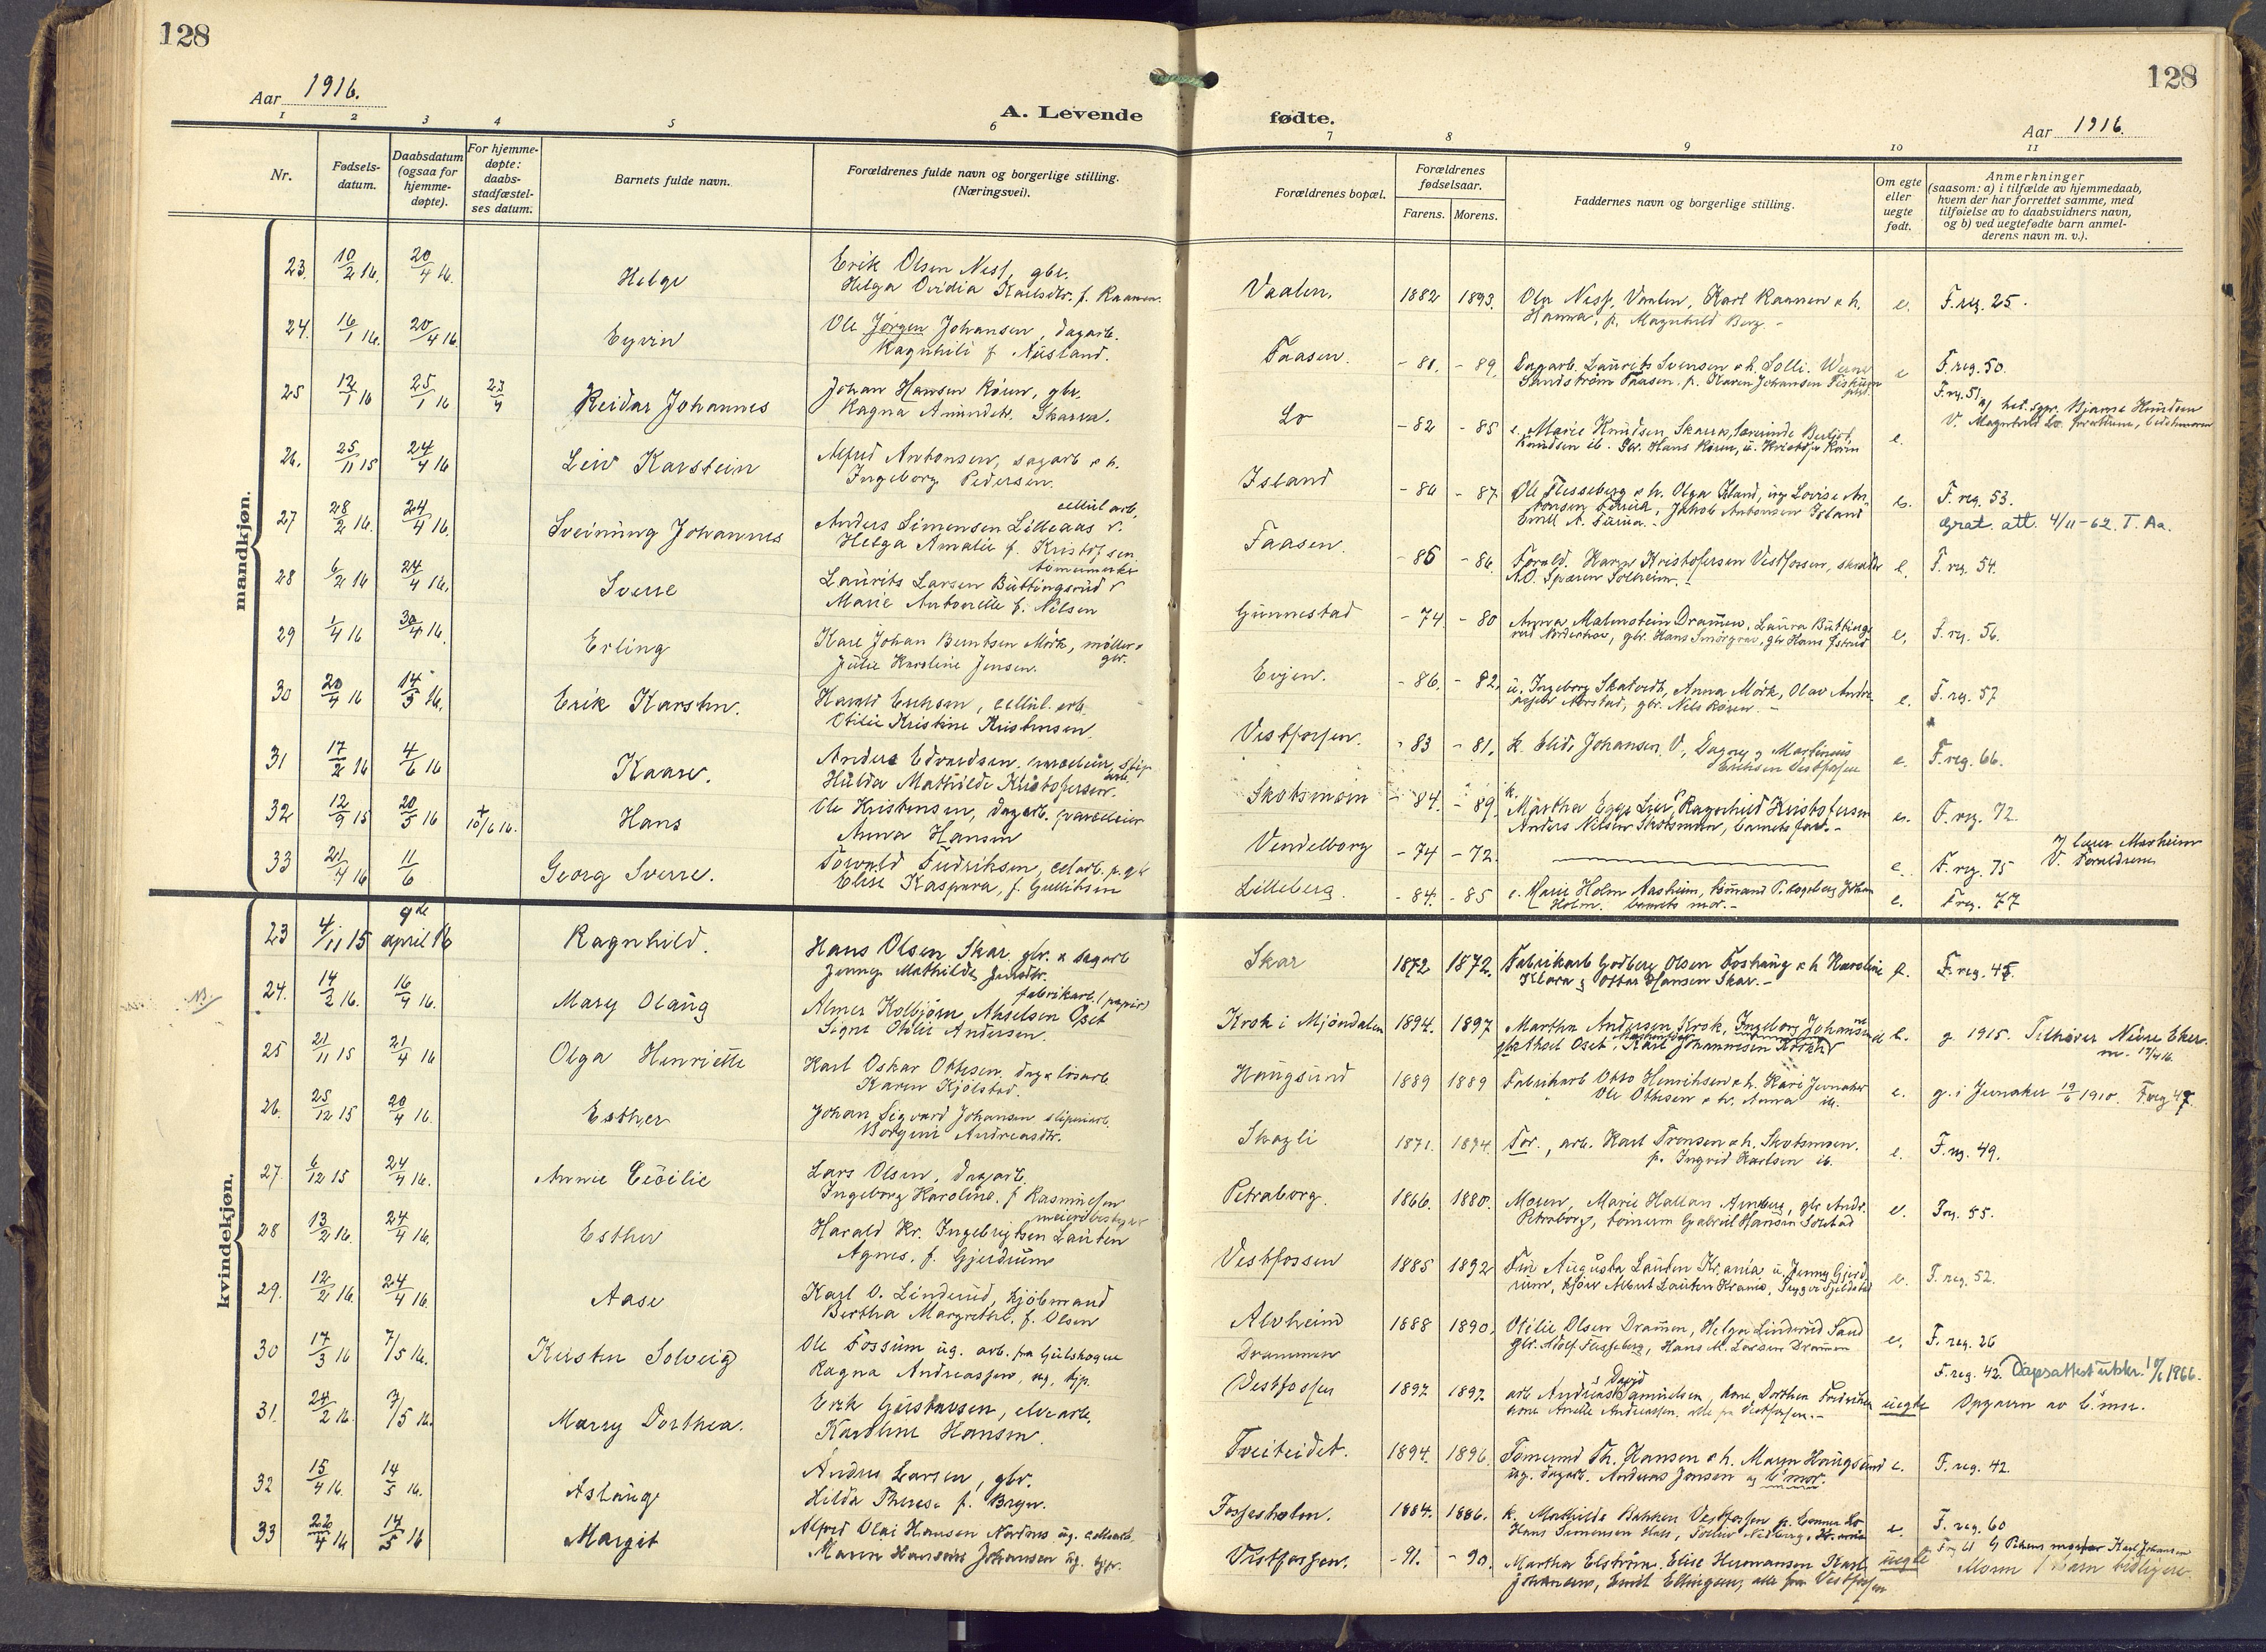 128
Aar 1916.
A. Levende
1 2 3 4 5 6
Nr.
Fødsels-
datum.
Daabsdatum
(ogsaa for
hjemme-
døpte).
For hjemme-
døpte:
daabs-
stadfæstel-
ses datum.
Barnets fulde navn.
Forældrenes fulde navn og borgerlige stilling.
(Næringsvei).
mandkjøn.
23. 10/2 16. 20/4 16. Helge Erik Olsen Ness, gbr.
Helga Ovidia Karlsdtr. f. Raanen.
24. 16/1 16. 20/4 16. Eyvin Ole Jørgen Johansen, dagarb.
Ragnhild f.
25 12/1 16 25/1 16 23/4 Reidar Johannes Johan Hansen Røren, gbr.
Ragna Amundsdtr. Skarra.
26. 25/11 15 24/4 16 Leiv Karstein Alfred Antonsen, sagarb & h.
Ingeborg Pedersen.
27 28/2 16. 24/4 16. Sveinung Johannes cellul arb.
Anders Simensen Lilleaas &
Helga Amalie f. Kristofsen
28 6/2 16 24/4 16. Sverre
Laurits Larsen Buttingsrud &
Marie Antonette f. Nilsen
29 1/4 16 30/4 16. Erling Karl Johan Berntsen Mørk, møller &
gbr.
Julie Karoline Jensen.
30 20/4 16 14/5 16. Erik Karsten. Harald Erichsen, cellul. arb.
Otilie Kristine Kristensen.
31 17/2 16 4/6 16 Kaare. Anders Edvardsen.
Hulda Mathilde Kristofersen.
32 12/9 15 20/5 16 + 10/6 16. Hans Ole Kristensen, dagarb.
Anna Hansen
33 21/4 16 11/6 Georg Sverre. Torvald Fredriksen,
Elise Kaspara, f. Gulliksen
kvindekjøn.
23 4/11 15 9de april 16 Ragnhild. Hans Olsen Skar. gbr. & sagarb
Jenny Mathilde Jensdtr.
24. 14/2 16. 16/4 16. Mary Olaug fabrikarb. (papir)
Almer Kolbjørn Akselsen Oset
Signe Otilie Andersen.
25 21/11 15 21/4 16 Olga Henriette Karl Oskar Ottesen. dag & løsarb
Karen Kjølstad.
26. 25/12 15 20/4 16. Esther Johan Sigvard Johansen sliperiarb.
Borgine Andreasdtr.
27. 6/12 15 24/4 16. Annie Cecilie Lars Olsen, dagarb.
Ingeborg Karoline. f Rasmussen
28 13/2 16. 24/4 16. Esther meieribestyrer
Harald Kr. Ingebrigtsen Lauten
Agnes. f. Gjerdrum
29. 12/2 16. 24/4 16. Aase Karl O. Linderud, kjøbmand
Bertha Margrethe. f. Olsen
30 17/3 16 7/5 16. Kirsten Solveig Ole Fossum ug. arb. fra Gulskogen
Ragna Andreassen, ug. tjp.
31. 24/2 16. 7/5 16. Marry Dorthea. Erik Gustavsen, elvearb.
Karoline Hansen.
32 15/4 16. 14/5 16. Aslaug Anders Larsen, gbr.
Hilda Therese f. Bryn.
33 22/4 16 14/5 16 Margit Alfred Olai Hansen ug.
Maren Johansen ug. tjp.
128
fødte.
Aar 1916.
7 8 9 10 11
Forældrenes bopæl.
Forældrenes
fødselsaar.
Farens. Morens.
Faddernes navn og borgerlige stilling.
Om egte
eller
uegte
født.
Anmerkninger
(saasom: a) i tilfælde av hjemmedaab,
hvem der har forrettet samme, med
tilføielse av to daabsvidners navn,
og b) ved uegtefødte barn anmel-
derens navn m. v.).
Vaalen. 1882 1893. Olga Ness, Vaalen, Karl Raanen & h. e. F. reg. 25.
Hanna, p. Magnhild Berg. -
Faasen. - 81. - 89. Dagarb. Laurits Svensen & h. Solli. e F. reg. 50.
Sandstrøm Faasen. p. Olaven Johansen
Lo - 82 - 85 e. Marie Knudsen Skarra, e. F. reg. 51
Knudsen ib. Gbr. Hans Røren, u. Kristofer Røren
Island - 86 - 87. Ole Flesseberg & h. Olga Island, ung Lovise An- e. F. reg. 53.
tonsen Furua, Jakob Antonsen Island
Emil A. Furua. - Grat. att. 4/11-62. T. Aa.
Faasen. - 85 - 86. Foreld. Karen Kristofersen Vestfossen, e. F. reg. 54.
Solheim. -
Gunnestad - 74 - 80 Anna Malmstein Drammen, Laura Buttings- e. F. reg. 56.
rud Nordestrøm, gbr. Hans Smørgrav, gbr Hans
Evjen. - 86. - 82. u. Ingeborg Skatvedt, Anna Mørk, Olav e. F. reg. 57
gbr. Nils Røren. -
Vestfossen. - 83 - 81. k. Elida Johansen V., Dagny & Martinius e. F. reg. 66.
Erichsen Vestfossen
Skotsmoen - 84. - 89. Martha Egge Lier, Ragnhild Kristofersen e. F. reg. 72.
Anders Nilsen Skotsmoen, barnets far. -
Vendelborg - 74 - 72. e. F. reg. 75
V. Foreldrene
Lilleberg. - 84. - 85 e. Marie Holm Aasheim, tømmand Johan e. F. reg. 77
Holm. barnets mor. -
Skar 1872 1872. Fabrikarb Godberg Olsen Foshaug & h Karoline F. reg. 45.
Klara & Ottar Hansen Skar. -
Krok i Mjøndalen 1894. 1897 Martha Andersen Krok, Ingeborg Johansen e. g. 1915. Tilhører Nedre Eker.
Aksel Oset, Karl Johannesen Krok
Haugsund 1889 1889 Fabrikarb Otto Henriksen & h. Kari Jevnaker e. g. i Jevnaker 19/6 1910. F. reg 47.
Ole Ottesen & h. Anna ib.
Skagli 1871. 1894. For., arb. Karl Tronsen & h. Skotsmoen. e. F. reg. 49.
p. Ingrid Karlsen ib.
Petraborg. 1866. 1880. Moren, Marie Hallan Arneberg, gbr Andr. e. F reg. 55.
Petraborg, tømrerm Gabriel Hansen Solstad
Vestfossen 1885 1892 Frk Augusta Lauten Kr.ania u. Jenny Gjerd- e. F. reg. 52.
rum, Albert Lauten Krania, Trygve
Alvheim 1888 1890. Otilie Olsen Drammen, Helga Linderud Sand e. F. reg. 26
Gbr. Adolf Flesseberg, Hans M. Larsen Drammen
Drammen
Vestfossen 1897 1897 arb Andreas David Samuelsen, kone Dorthea Fredriksen uegte F. reg. 42 Daapsattest utskr. 1966.
kone Anette Andreassen. alle fra Vestfossen. - Opgaven av b. mor.
Tveiteidet. 1894. 1896. Tømmermd Th. Hansen & h. Maren Haugsund e. F. reg. 42.
ug. dagarb. Andreas Jonsen og b. mor.
Fossesholm. 1884. 1886. k. Mathilde Bakken Vestfossen e. F. reg. 60
Hans Simensen
Vestfossen. - 91. - 90. Martha Elstrøm. Elise Hermansen Karl uegte Karl Johansen
Johansen, Emil Ellingsen, alle fra Vestfossen Moren 1 barn tidligere.